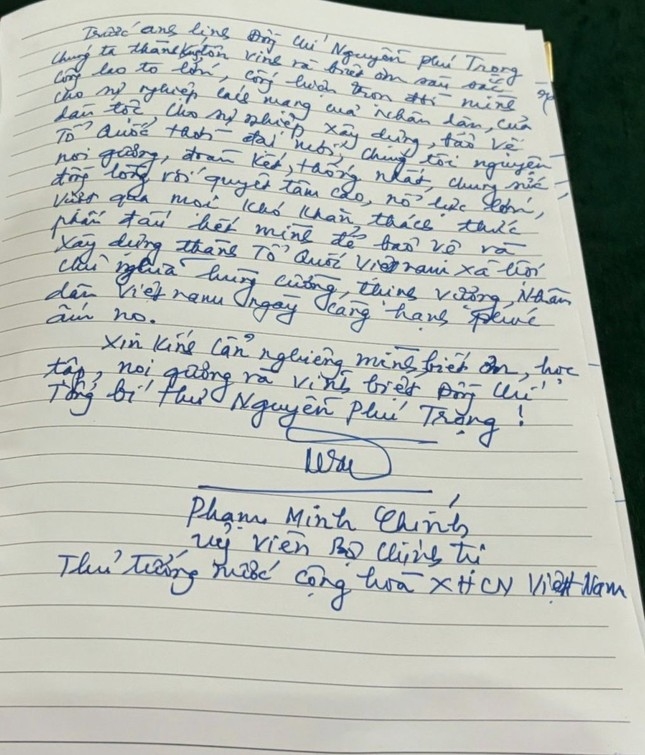 Trước anh linh Đồng chí Nguyễn Phú Trọng
chúng ta thành kính tôn vinh và biết ơn sâu sắc
công lao to lớn, cống hiến trọn đời mình
cho sự nghiệp cách mạng của Nhân dân, của
dân tộc, cho sự nghiệp xây dựng, bảo vệ
Tổ Quốc thời đại mới, chúng tôi nguyện
noi gương, đoàn kết, thống nhất, chung sức
đồng lòng với quyết tâm cao, nỗ lực lớn,
vượt qua mọi khó khăn thách thức
phấn đấu hết mình để bảo vệ và
xây dựng thành Tổ Quốc Việt nam xã hội
chủ nghĩa hùng cường, thịnh vượng, Nhân
dân Việt nam ngày càng hạnh phúc
ấm no.
Xin kính cẩn nghiêng mình biết ơn, học
tập, noi gương và vĩnh biệt Đồng chí
Tổng bí thư Nguyễn Phú Trọng !
Phạm Minh Chính
Uỷ viên Bộ Chính trị
Thủ tướng nước cộng hoà XHCN Việt Nam